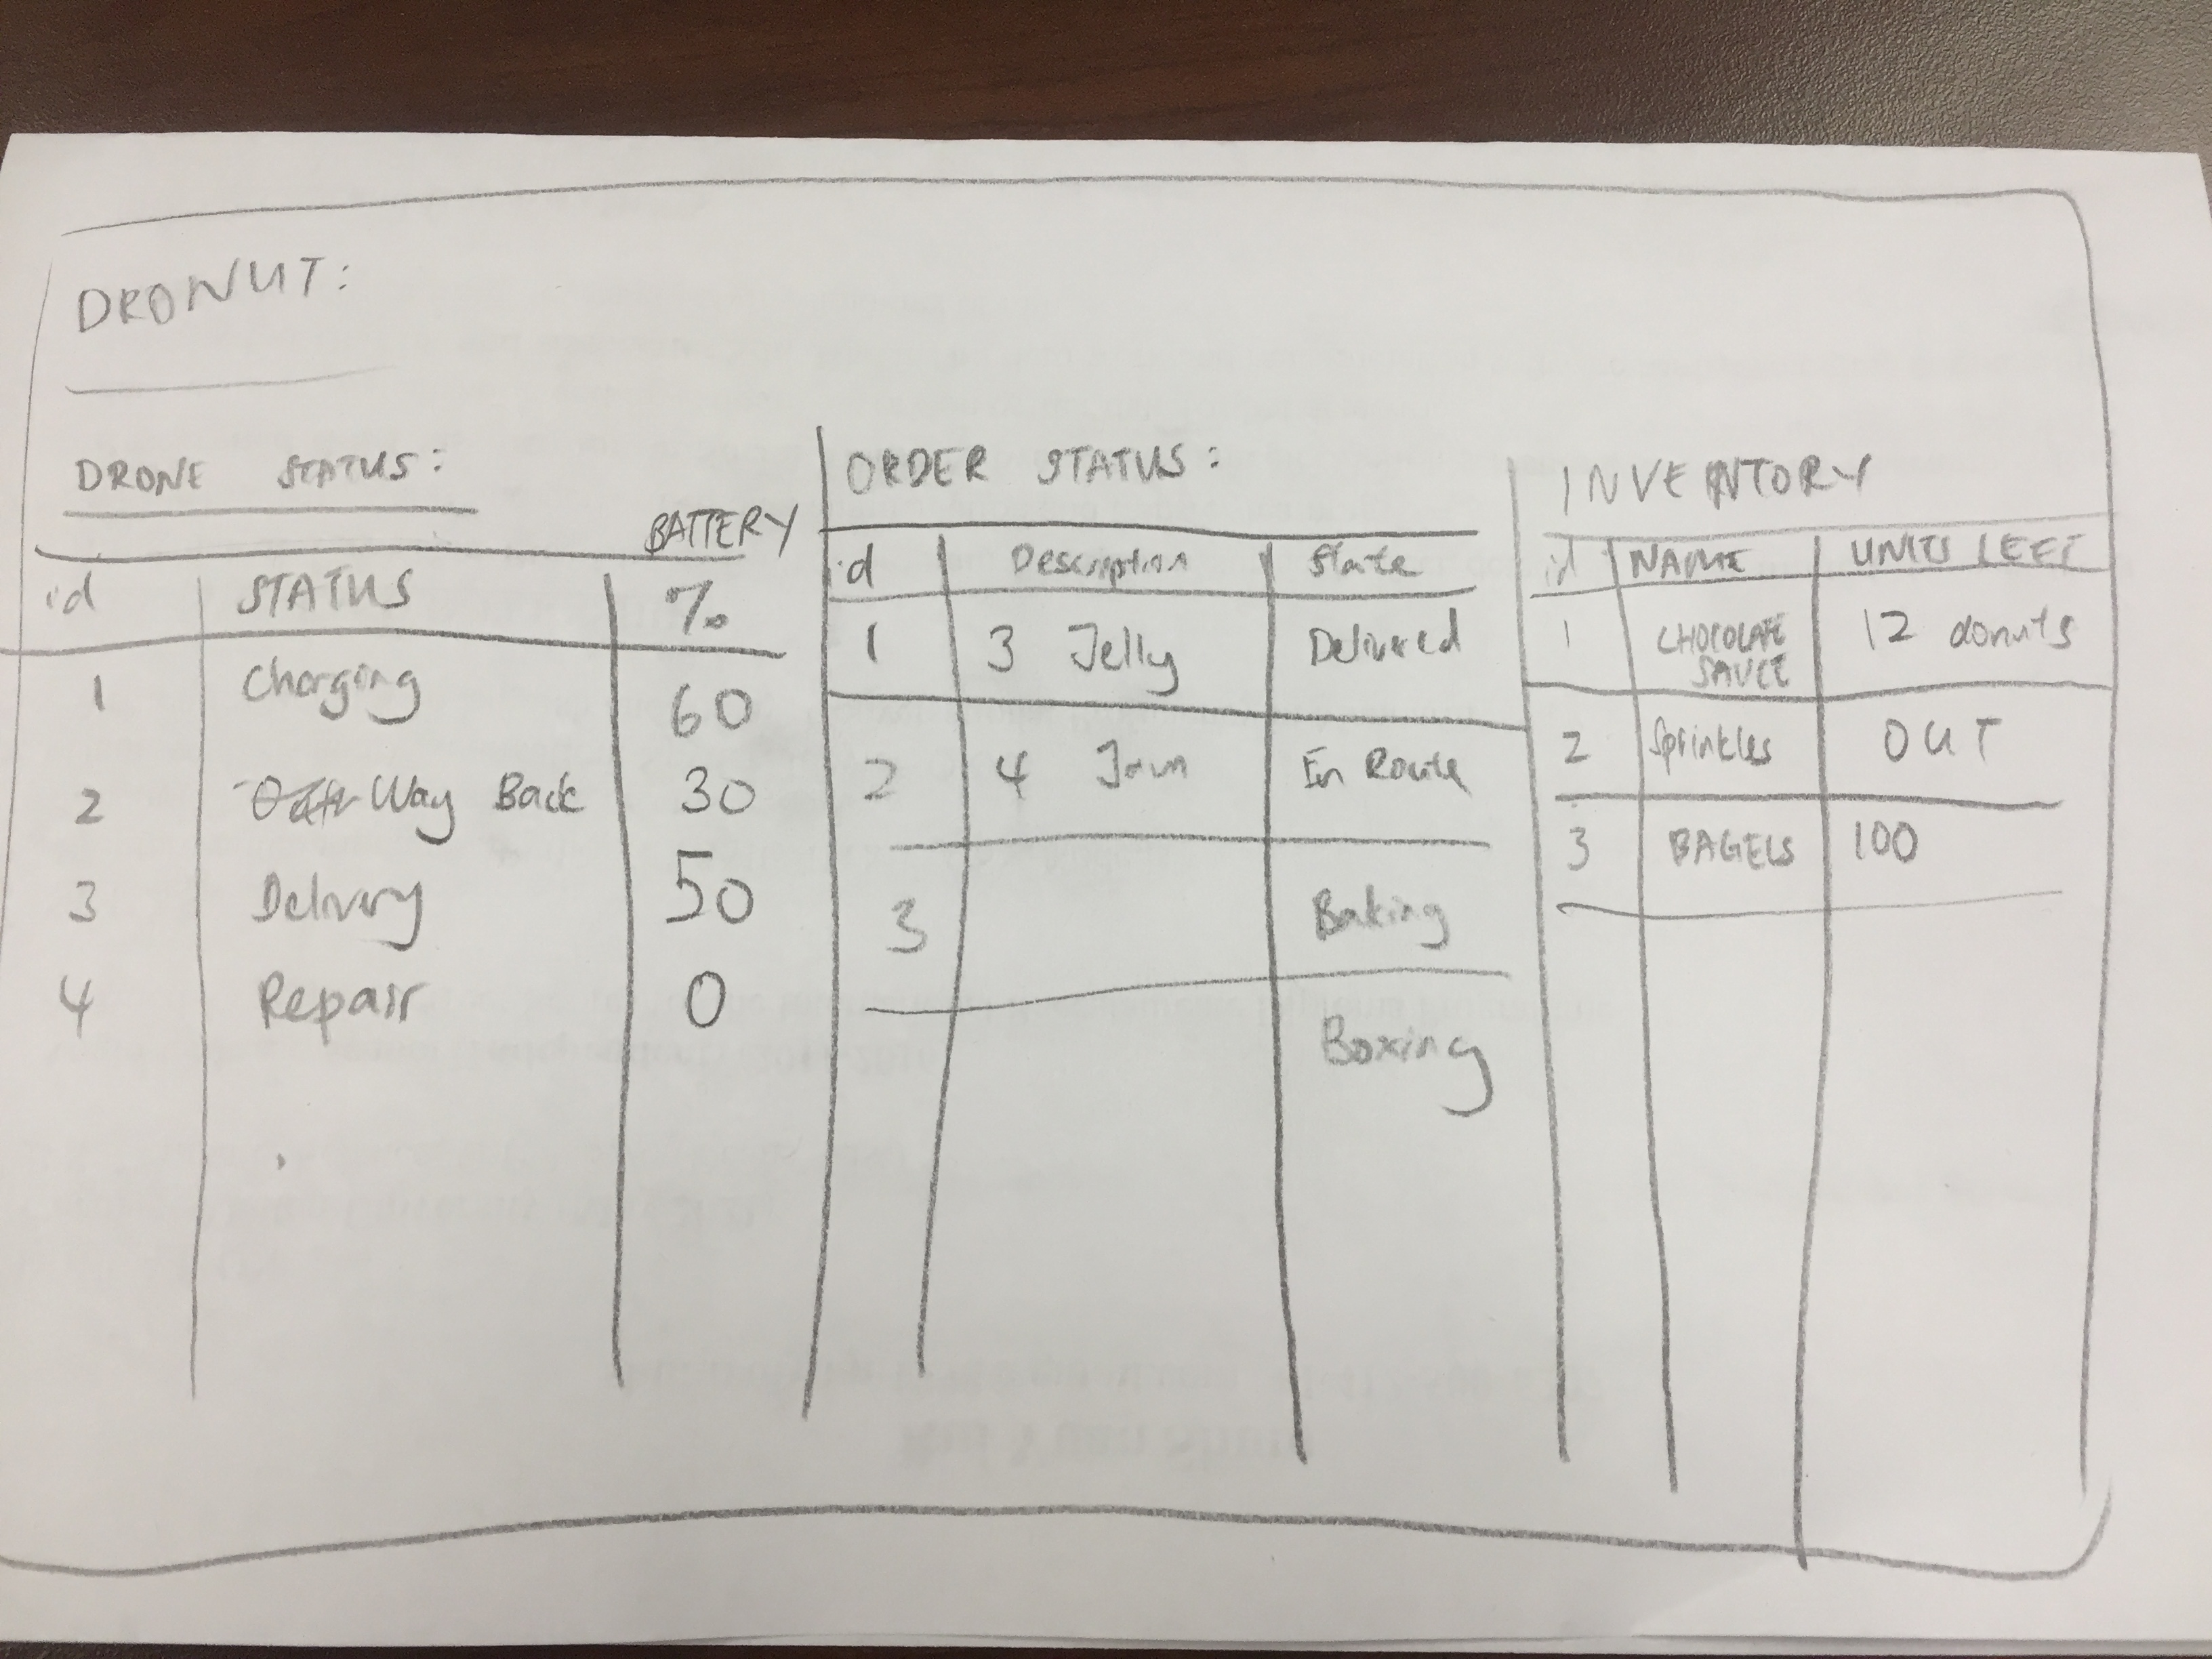 DRONUT:
DRONE STATUS:
id STATUS BATTERY %
1 Charging 60
2 Way Back 30
3 Delivery 50
4 Repair 0
ORDER STATUS:
id Description State
1 3 Jelly Delivered
2 4 Jam En Route
3 Baking
Boxing
INVENTORY
id NAME UNITS LEFT
1 CHOCOLATE SAUCE 12 donuts
2 Sprinkles OUT
3 BAGELS 100